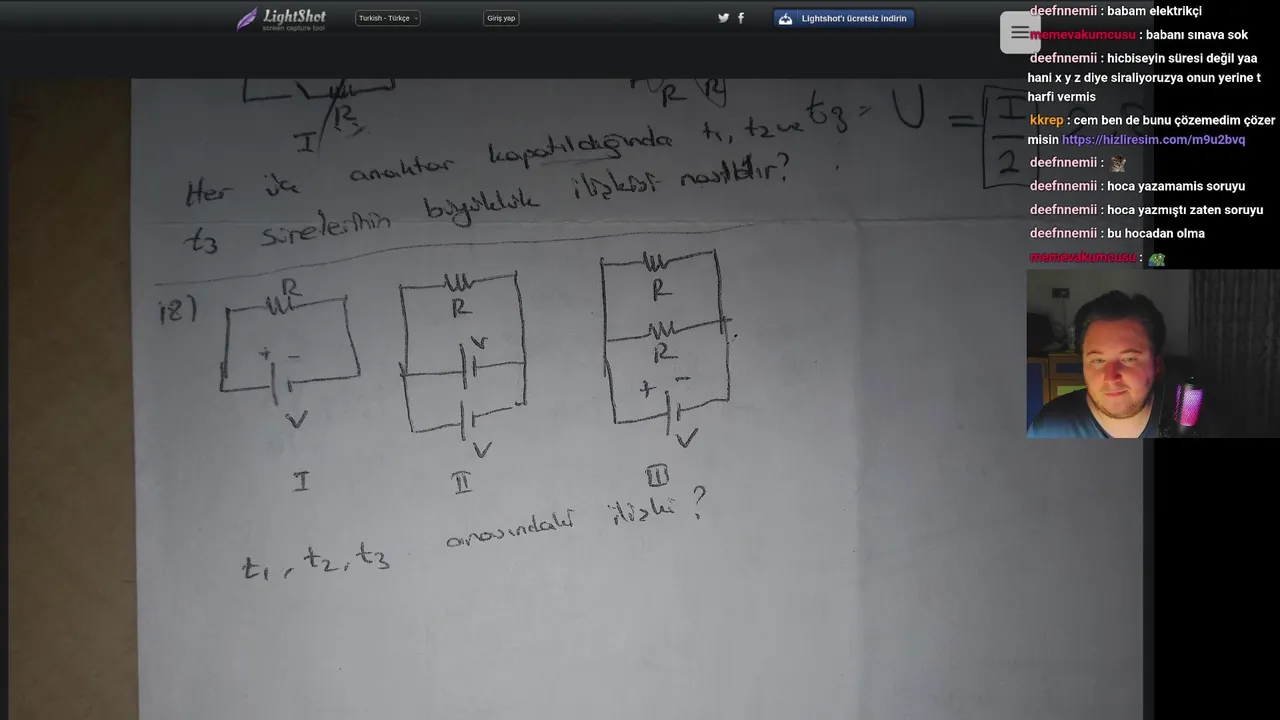 LightShot
screen capture tool
Turkish - Türkçe
Giriş yap
Lightshot'ı ücretsiz indirin
R
R R
I
t3 = U = I
2
Her iki anahtar kapatıldığında t1, t2 ve
t3 sürelerinin büyüklük ilişkisi nasıldır?
18)
R
+ -
V
I
R
V
V
II
R
R
+ -
V
III
t1, t2, t3 arasındaki ilişki?
deefnnemii : babam elektrikçi
memevakumcusu : babanı sınava sok
deefnnemii : hicbiseyin süresi değil yaa
hani x y z diye siraliyoruzya onun yerine t
harfi vermis
kkrep : cem ben de bunu çözemedim çözer
misin https://hizliresim.com/m9u2bvq
deefnnemii :
deefnnemii : hoca yazamamis soruyu
deefnnemii : hoca yazmıştı zaten soruyu
deefnnemii : bu hocadan olma
memevakumcusu :